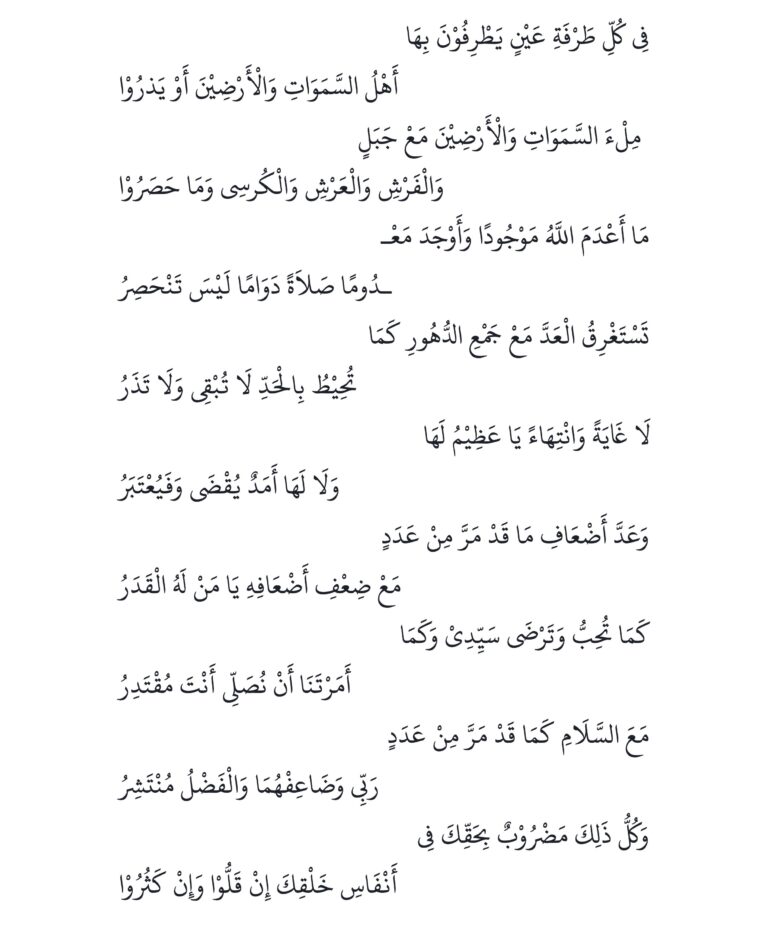 فِى كُلِّ طَرْفَةِ عَيْنٍ يَطْرِفُوْنَ بِهَا
أَهْلُ السَّمَوَاتِ وَالْأَرْضِيْنَ أَوْ يَذرُوْا
مِلْءَ السَّمَوَاتِ وَالْأَرْضِيْنَ مَعْ جَبَلٍ
وَالْفَرْشِ وَالْعَرْشِ وَالْكُرسِى وَمَا حَصَرُوْا
مَا أَعْدَمَ اللَّهُ مَوْجُودًا وَأَوْجَدَ مَعْـ
ـدُومًا صَلاَةً دَوَامًا لَيْسَ تَنْحَصِرُ
تَسْتَغْرِقُ الْعَدَّ مَعْ جَمْعِ الدُّهُورِ كَمَا
تُحِيْطُ بِالْحَدِّ لَا تُبْقِى وَلَا تَذَرُ
لَا غَايَةً وَانْتِهَاءً يَا عَظِيْمُ لَهَا
وَلَا لَهَا أَمَدٌ يُقْضَى وَفَيُعْتَبَرُ
وَعَدَّ أَضْعَافِ مَا قَدْ مَرَّ مِنْ عَدَدٍ
مَعْ ضِعْفِ أَضْعَافِهِ يَا مَنْ لَهُ الْقَدَرُ
كَمَا تُحِبُّ وَتَرْضَى سَيِّدِىْ وَكَمَا
أَمَرْتَنَا أَنْ نُصَلِّى أَنْتَ مُقْتَدِرُ
مَعَ السَّلَامِ كَمَا قَدْ مَرَّ مِنْ عَدَدٍ
رَبِّى وَضَاعِفْهُمَا وَالْفَضْلُ مُنْتَشِرُ
وَكُلُّ ذَلِكَ مَضْرُوْبٌ بِحَقِّكَ فِى
أَنْفَاسِ خَلْقِكَ إِنْ قَلُّوْا وَإِنْ كَثُرُوْا